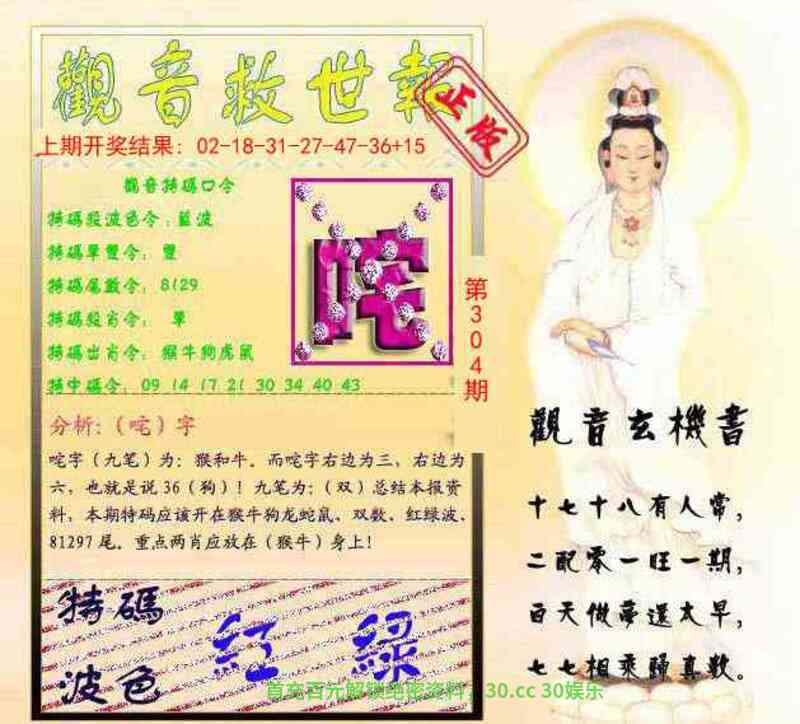 觀音救世報
正版
上期开奖结果：02-18-31-27-47-36+15
觀音特碼口令
特碼段波色令：藍波
特碼單雙令：雙
特碼尾數令：8129
特碼段肖令：單
特碼出肖令：猴牛狗虎鼠
特中碼令：09 14 17 21 30 34 40 43
咤
第304期
分析：（咤）字
咤字（九笔）为：猴和牛。而咤字右边为三，右边为
六，也就是说36（狗）！九笔为：（双）总结本报资
料，本期特码应该开在猴牛狗龙蛇鼠、双数、红绿波、
81297尾。重点两肖应放在（猴牛）身上！
特碼
波色
紅 綠
觀音玄機書
十七十八有人常，
二配零一旺一期，
百天做夢還太早，
七七相乘歸真數。
首充百元解锁绝密资料，30.cc 30娱乐